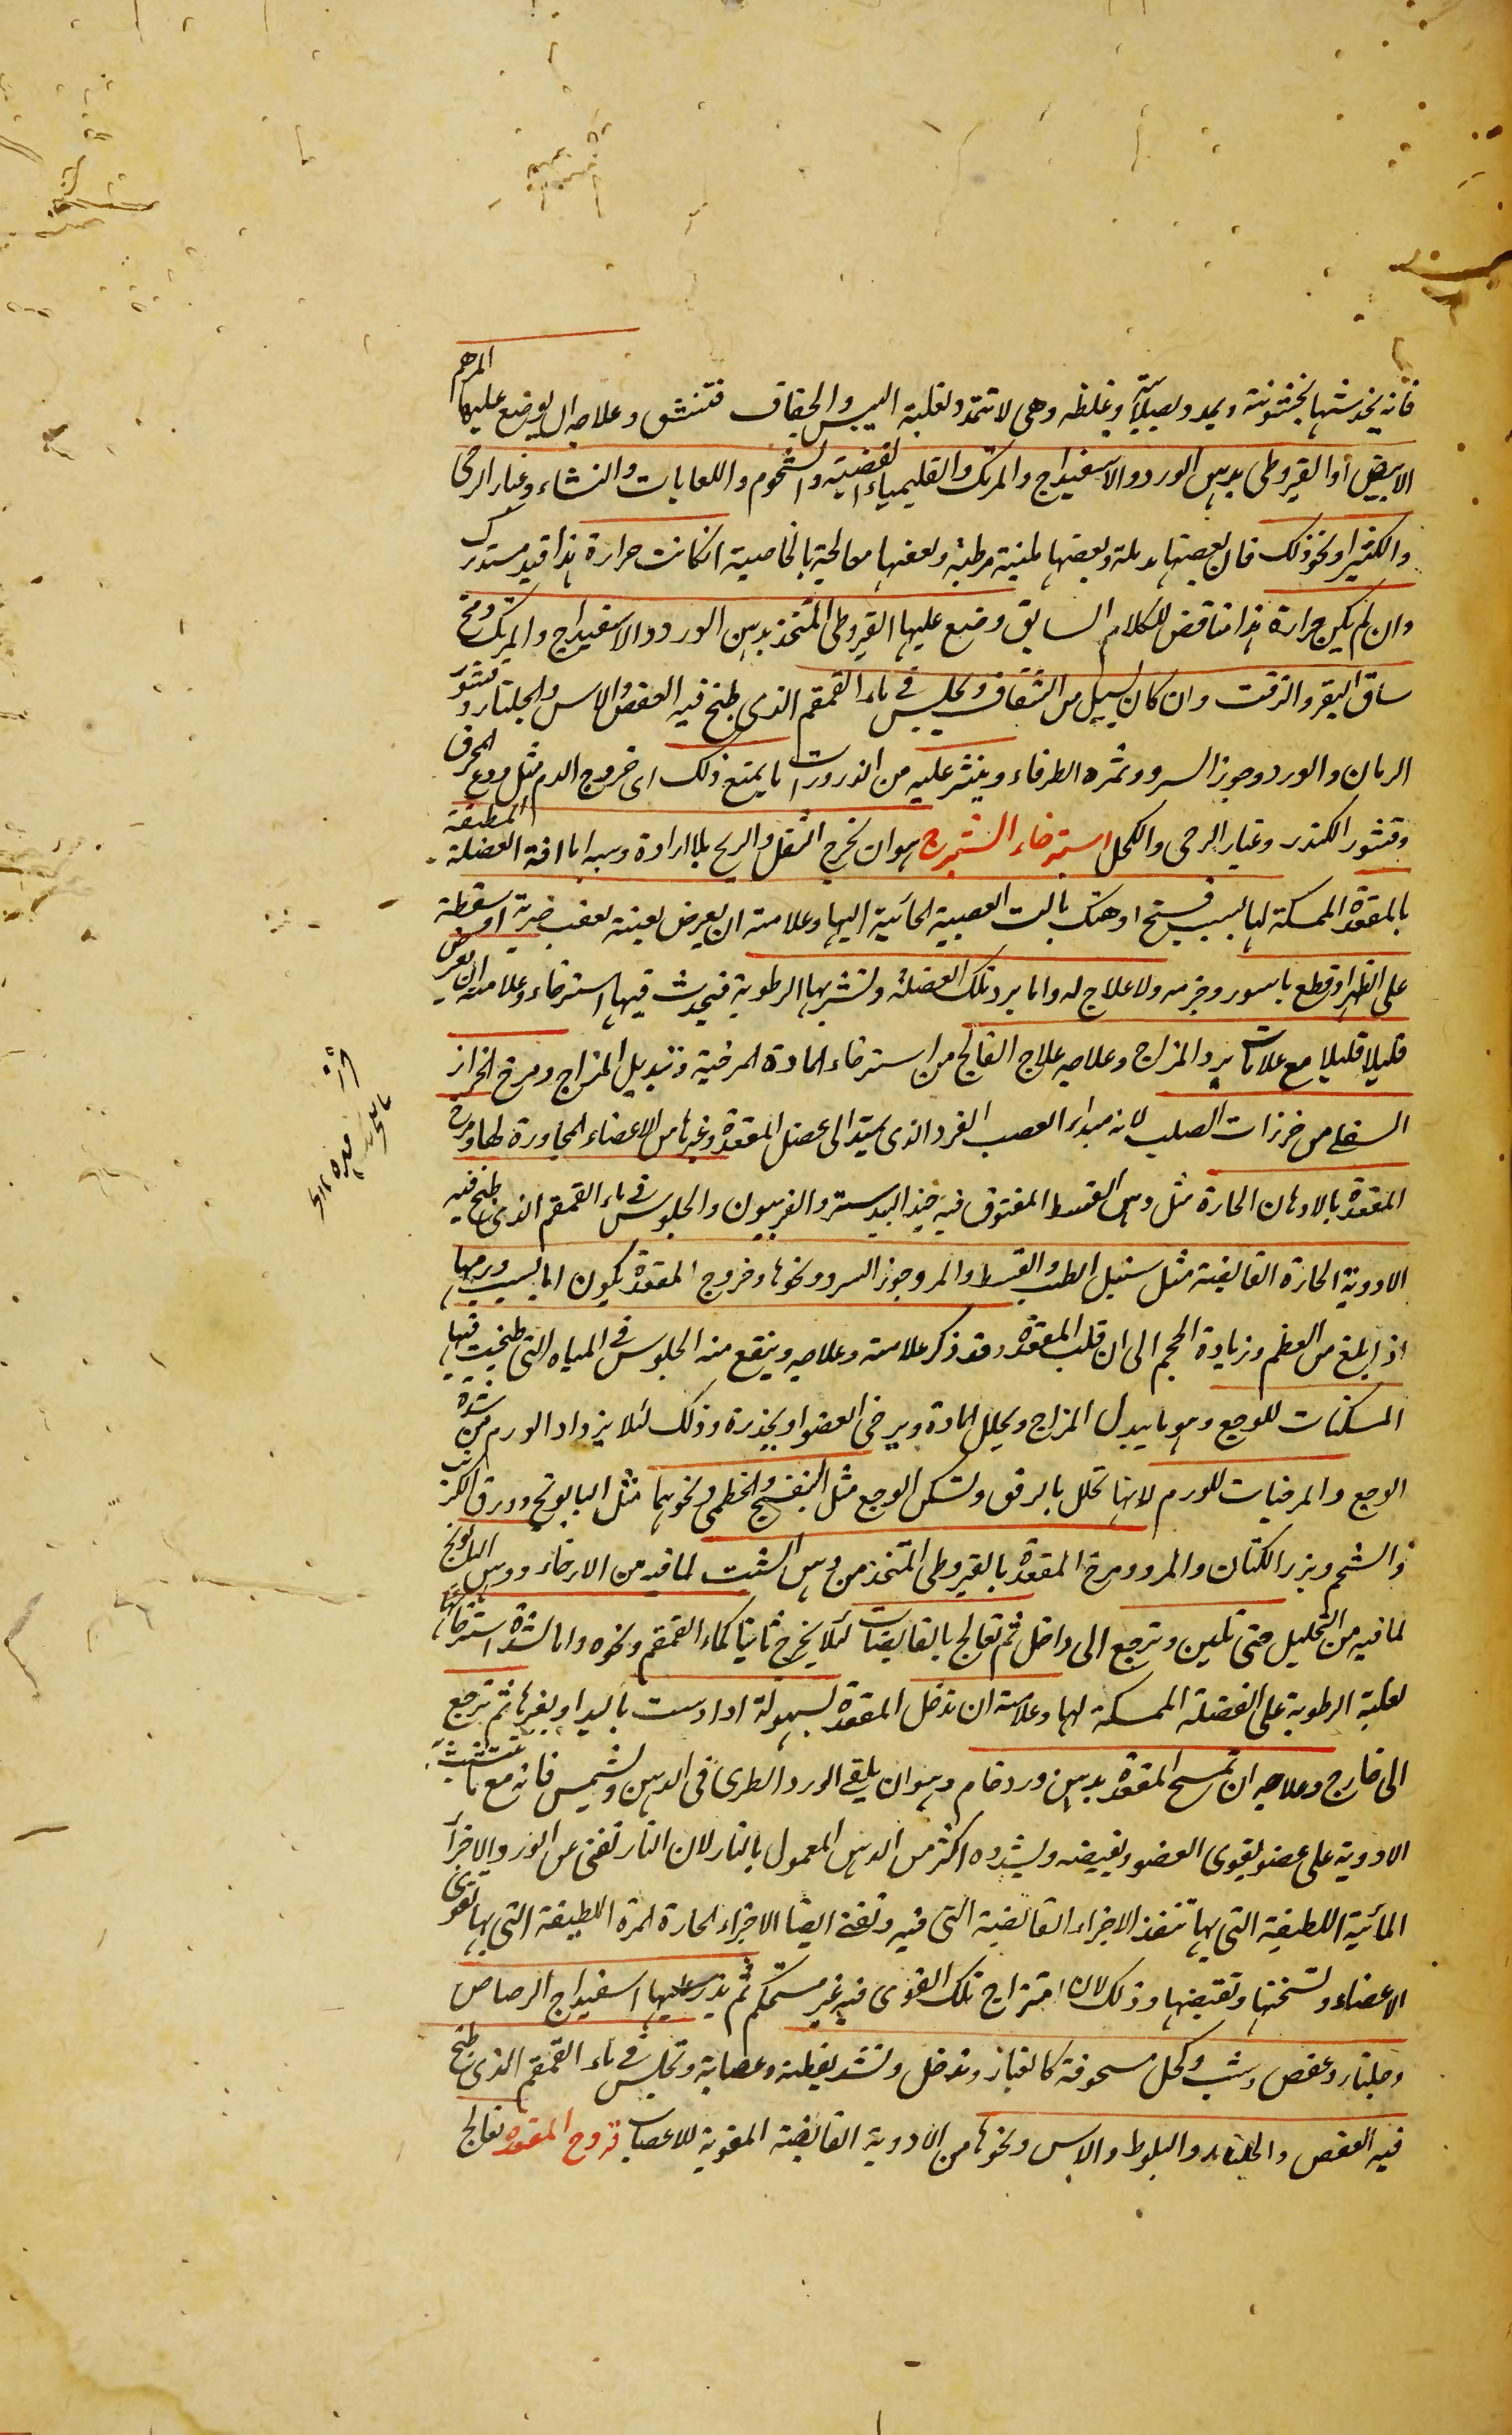 فانه يخدشها بخشونته ويمدد بصلابته وغلظه وهى لا تتمدد لغلبة اليبس والجفاف فتنشق وعلاجه ان يوضع عليها المرهم
الابيض أو القيروطى بدهن الورد والاسفيداج والمرتك والقليمياء الفضية والشحوم واللعابات والنشاء وغبار الرحى
والكثيرا ونحو ذلك فان بعضها مدملة وبعضها ملينة مرطبة وبعضها معالجة بالخاصية ان كانت حرارة هذا قيد مستدرك
وان لم يكن حرارة هذا مناقض للكلام السابق وضع عليها القيروطى المتخذ بدهن الورد والاسفيداج والمرتك ومخ
ساق البقر والزفت وان كان يسيل من الشقاق ويجلس فى ماء القمقم الذى طبخ فيه العفص والاس والجلنار وقشور
الرمان والورد وجوز السرو وثمره الطرفاء وينثر عليه من الذرورات ما يمنع ذلك اى خروج الدم مثل ودع المحرق
وقشور الكندر وغبار الرحى والكحل استرخاء الشرج هو ان يخرج الثفل والريح بلا ارادة وسببه اما افة العضلة المطيفة
بالمقعدة الممسكة لها بسبب فسخ او هتك نالت العصبة الجائية اليها وعلامته ان يعرض بغتة بعقب ضربة او سقطة
على الظهر او قطع باسور وخزمه ولا علاج له واما برد تلك العضلة وتشربها الرطوبة فيحدث فيها استرخاء وعلامته ان يعرض
قليلا قليلا مع علامات برد المزاج وعلاجه علاج الفالج من استرخاء المادة المرخية وتبديل المزاج ومرخ الخرزات
السفلى من خرزات الصلب لانه مبداء العصب الفرد الذى يمتد الى عضل المقعدة وغيرها من الاعضاء المجاورة لها ومرخ
المقعدة بالادهان الحارة مثل دهن القسط المفتوق فيه جند البيدستر والفربيون والجلوس فى ماء القمقم الذى طبخ فيه
الادوية الحارة القابضة مثل سنبل الطيب والقسط والمر وجوز السرو ونحوها وخروج المقعدة يكون اما بسبب ورمها
اذا بلغ من العظم وزيادة الحجم الى ان قلب المقعدة وقد ذكر علامته وعلاجه وينفع منه الجلوس فى المياه التى طبخت فيها
المسكنات للوجع وهو ما يبدل المزاج ويحلل المادة ويرخى العضو او يخدره وذلك لئلا يزداد الورم من شدة
الوجع والمرخيات للورم لانها تحلل بالرفق وتسكن الوجع مثل البنفسج والخطمى ونحوهما مثل البابونج وورق الكرنب
والشحم وبزر الكتان والمر ومرخ المقعدة بالقيروطى المتخذ من دهن الشبت لما فيه من الارخاء ودهن البابونج
لما فيه من التحليل حتى تلين وترجع الى داخل ثم تعالج بالقابضات لئلا يخرج ثانيا كماء القمقم ونحوه واما لشدة استرخائها
لغلبة الرطوبة على العضلة الممسكة لها وعلامته ان تدخل المقعدة بسهولة اذا دست باليد او بغيرها ثم ترجع
الى خارج وعلاجه ان تمسح المقعدة بدهن ورد خام وهو ان يلقى الورد الطرى فى الدهن ويشمس فانه مع
الادوية على عضو يقوى العضو ويقبضه ويشدده اكثر من الدهن المعمول بالنار لان النار تفنى عن الورد الاجزاء
المائية اللطيفة التى بها تنفذ الاجزاء القابضة التى فيه وتفنى ايضا الاجزاء الحارة المرة اللطيفة التى بها تقوى
الاعضاء وتسخنها وتقبضها وذلك لان امتزاج تلك القوى فيه غير مستحكم ثم يذر عليها اسفيداج الرصاص
وجلنار وعفص وشب وكحل مسحوقة كالغبار وتدخل وتشد بقطنة وعصابة وتجلس فى ماء القمقم الذى طبخ
فيه العفص والجلنار والبلوط والاس ونحوها من الادوية القابضة المقوية للاعصاب قروح المقعده تعالج